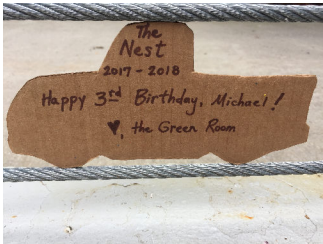 The
Nest
2017-2018
Happy 3rd Birthday, Michael!
♥, the Green Room